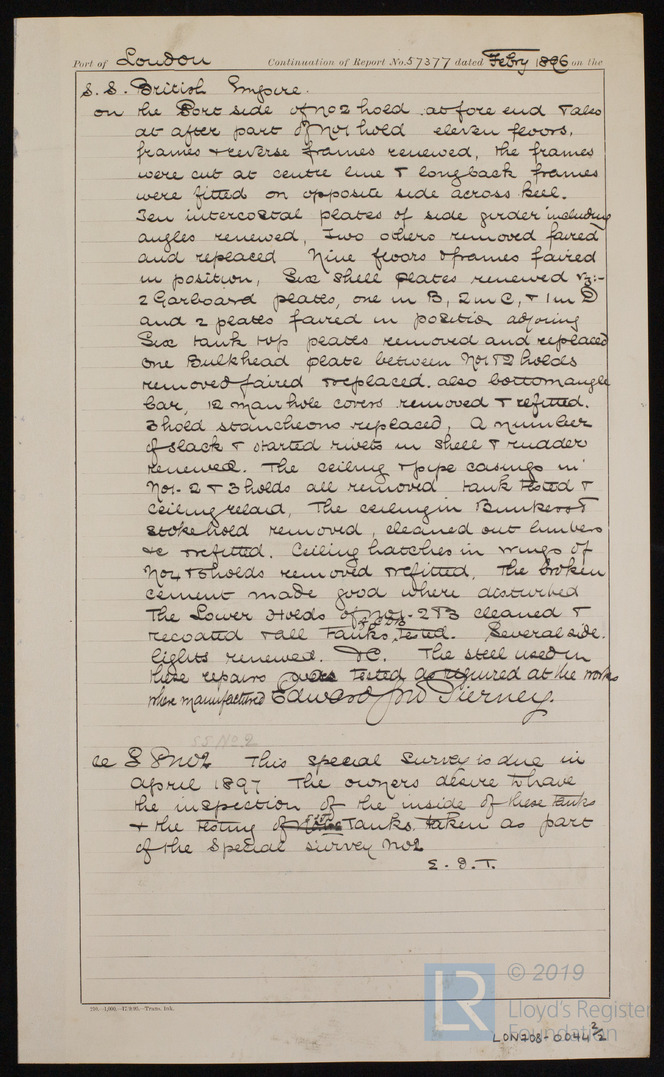 Port of London Continuation of Report No. 57377 dated Febry 1896 on the
S.S. British Empire.
on the Port side of No2 hold at fore end & also
at after part of No1 hold eleven floors,
frames & reverse frames renewed, the frames
were cut at centre line & longback frames
were fitted on opposite side across keel.
Ten intercostal plates of side girder including
angles renewed, Two others removed faired
and replaced Nine floors & frames faired
in position, Six Shell plates renewed viz:-
2 Garboard plates, one in B, 2 in C, & 1 in D
and 2 plates faired in position adjoining
Six tank top plates removed and replaced
One Bulkhead plate between No1 & 2 holds
removed faired & replaced. also bottom angle
bar, 12 man hole covers removed & refitted.
3 hold stancheons replaced, A number
of slack & started rivets in shell & rudder
renewed. The ceiling & pipe casings in
No1-2 & 3 holds all removed tank tested &
ceiling relaid, The ceiling in Bunkers &
stokehold removed, cleaned out limbers
&c & refitted. Ceiling hatches in wings of
No4 & 5 holds removed & refitted. The broken
cement made good where disturbed
The Lower Holds of No1-2 & 3 cleaned &
recoated & all Tanks Tested. Several side.
lights renewed. &C. The steel used in
these repairs was tested as required at the works
where manufactured Edward Jno Tierney.
SS No. 2
S S No2 This special Survey is due in
April 1897 The owners desire to have
the inspection of the inside of these tanks
& the testing of Tanks, taken as part
of the Special survey No2
E. J. T.
© 2019
LR
Lloyd's Register
Foundation
LON708-0044 2/2